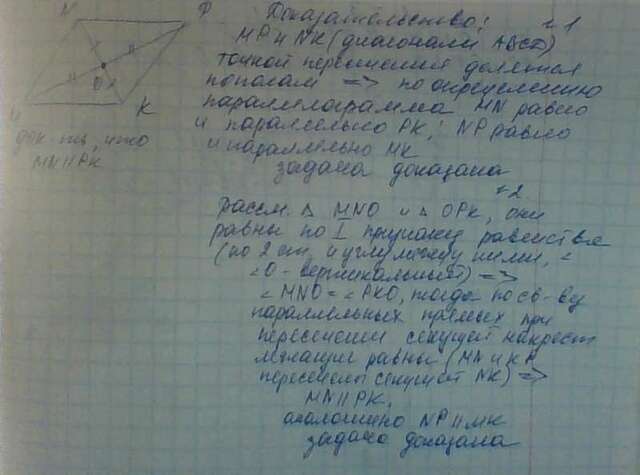 N
P
O
M
K
док-ть, что
MN||PK
Доказательство: 1
MP и NK (диагонали ABCD)
точкой пересечения делятся
пополам => по определению
параллелограмма MN равно
и параллельно PK; NP равно
и параллельно MK
задача доказана
2
Рассм. Δ MNO и Δ OPK, они
равны по I признаку равенства
(по 2 ст. и углу между ними,
∠O - вертикальный) =>
∠MNO = ∠PKO, тогда по св-ву
параллельных прямых при
пересечении секущей накрест
лежащие равны (MN и KP
пересечены секущей NK) =>
MN||PK,
аналогично NP||MK
задача доказана